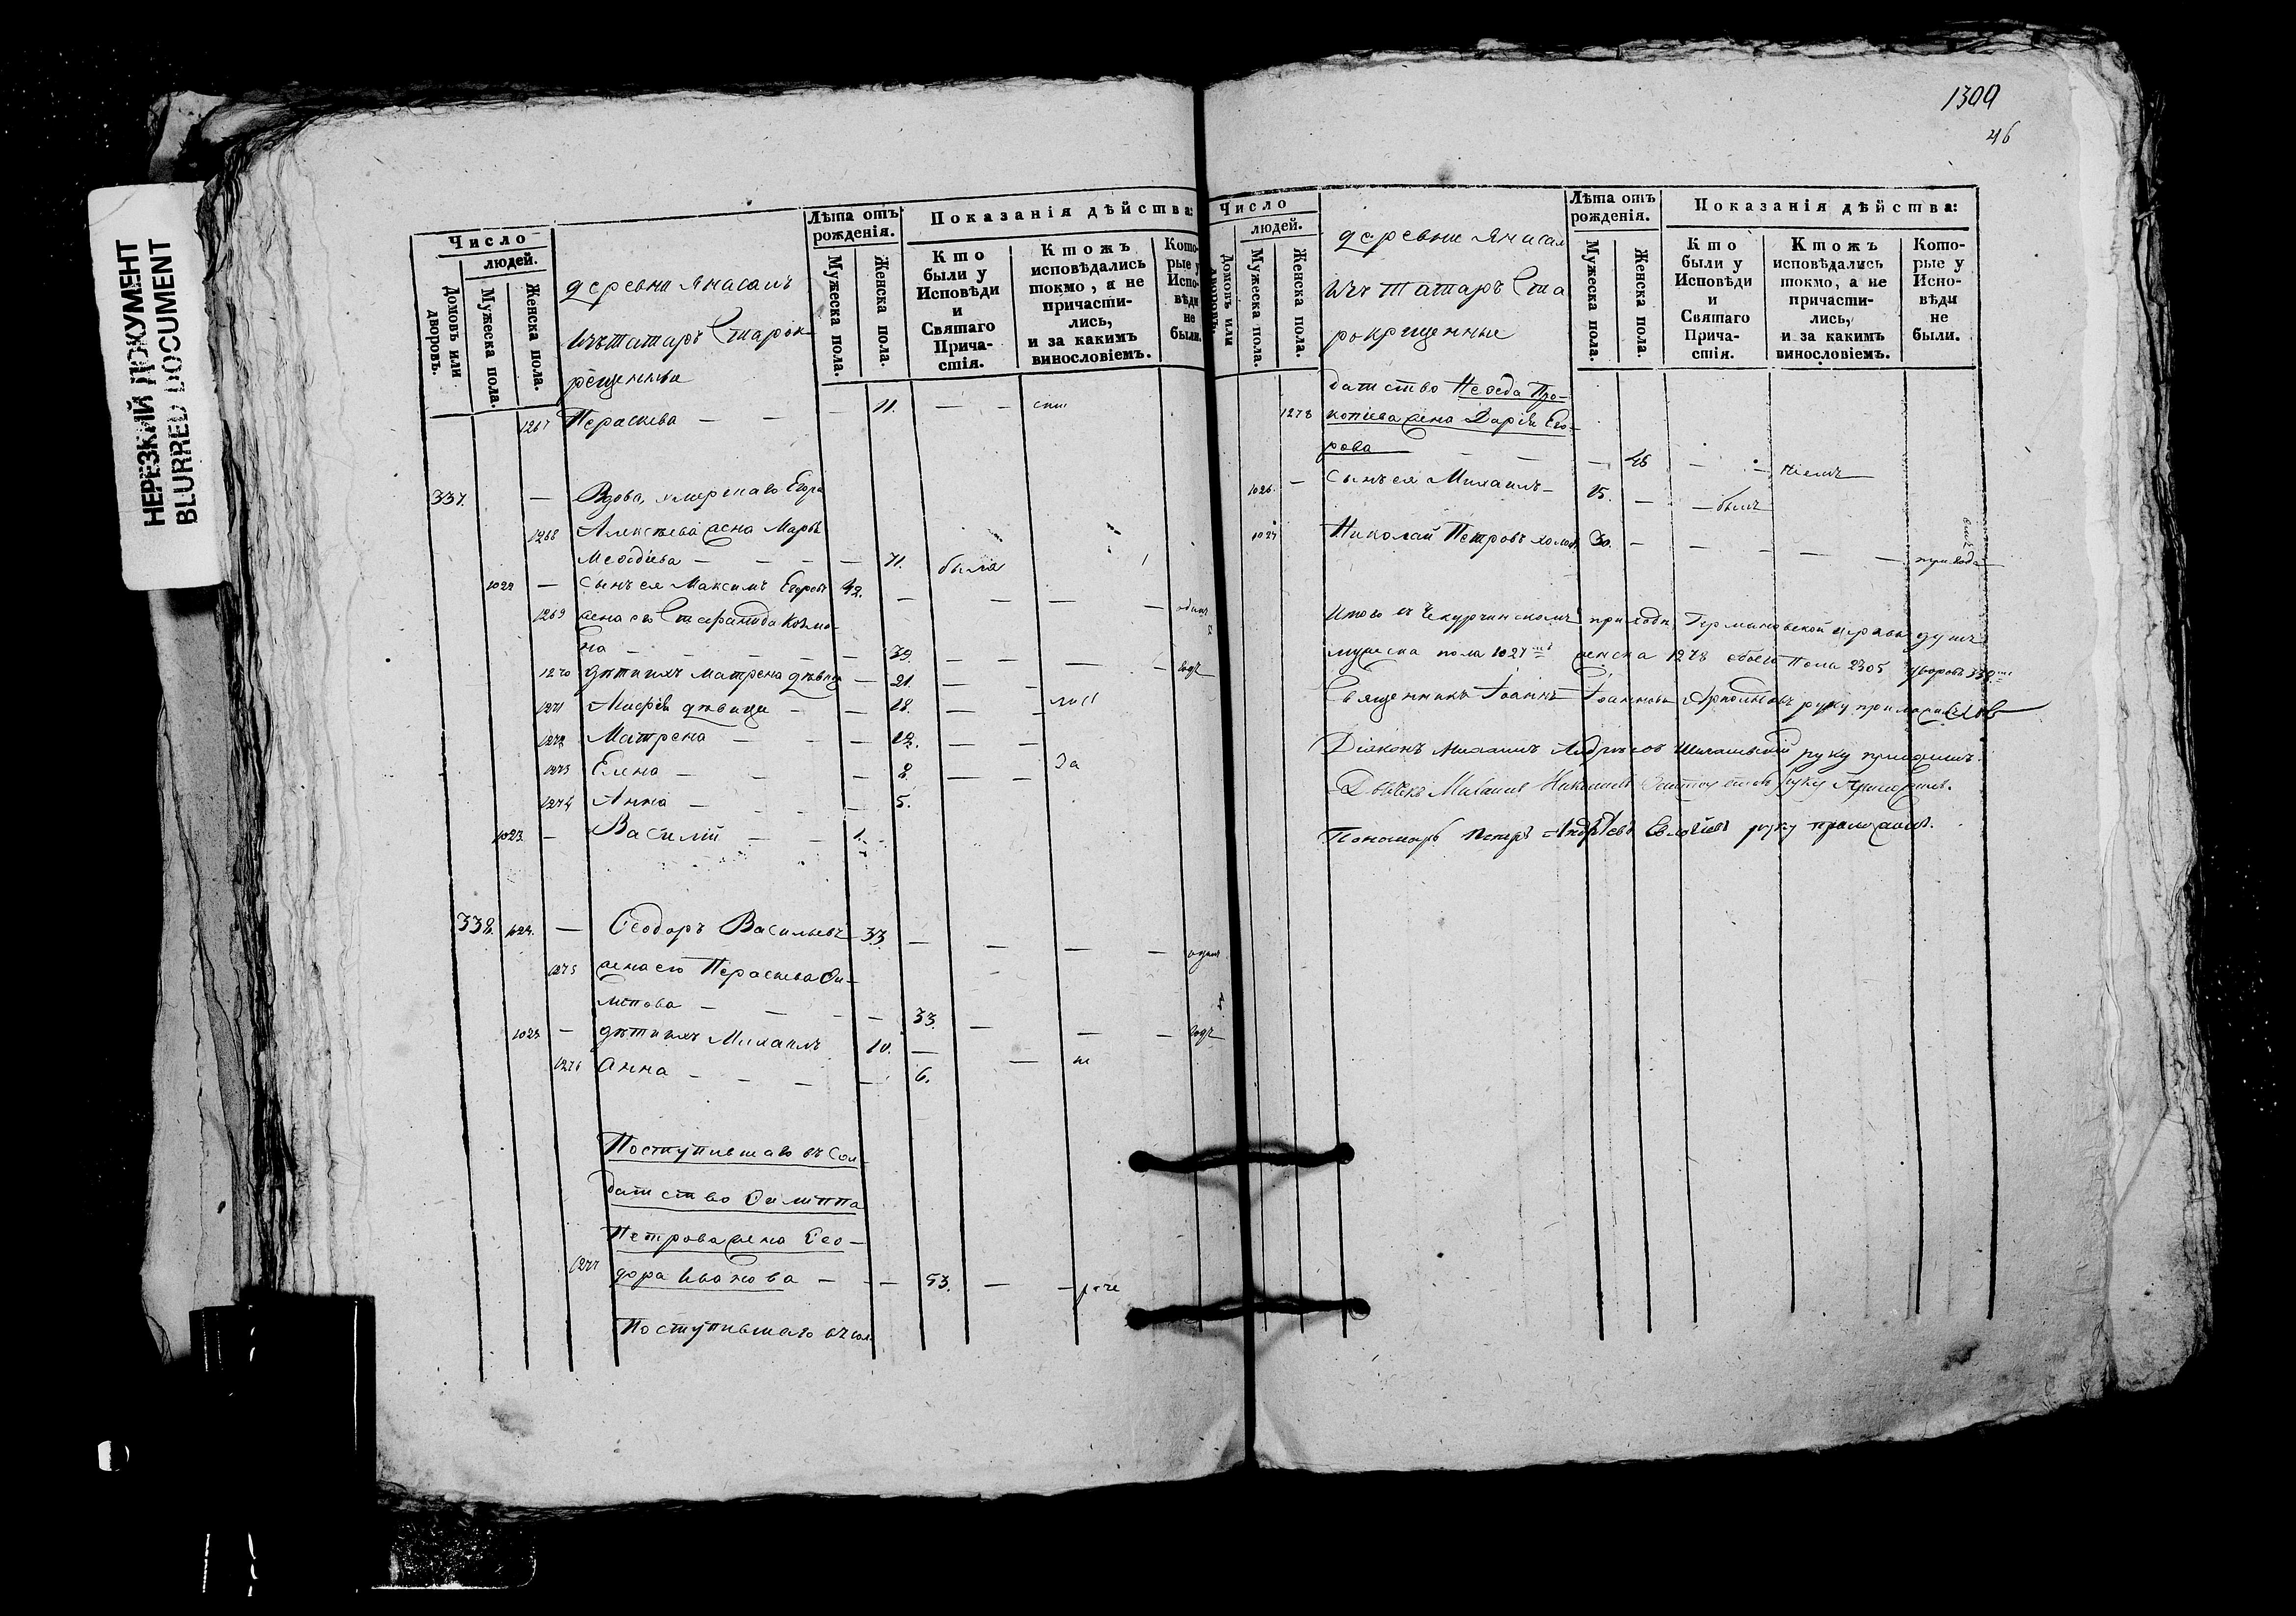 НЕРЕЗКИЙ ДОКУМЕНТ
BLURRED DOCUMENT
Число
людей.
Домовъ или дворовъ.
Мужеска пола.
Женска пола.
деревни Янасалъ
изъ татаръ Старок
рещенныя
Лѣта отъ рожденія.
Мужеска пола.
Женска пола.
Показанія дѣйства:
Кто были у Исповѣди и Святаго Причастія.
Ктожъ исповѣдались токмо, а не причастились, и за какимъ винословіемъ.
Которые у Исповѣди не были.
1267 Параскева — — — 11. — —
337. — Вдова, умершаго Егора
1268 Алексѣева жена Марѳа
Меѳодіева — — — — 71. была
1022 — Сынъ ея Максимъ Егоровъ 42. — — — —
1269 жена его Стефанида Козмо-
на — — — — — 39. — — — — годъ
1270 дѣти ихъ Матрена дѣвица — 21. — —
1271 Марѳа дѣвица — — 18. — —
1272 Матрена — — — 12. — —
1273 Елена — — — 8. — — за
1274 Анна — — — 5.
1023 — Василій — — 1.
338. 1024. — Ѳеодоръ Васильевъ 33. — — — —
1275 жена его Параскева Фи-
липова — — — — 33. — — — годъ
1025 — дѣти ихъ Михаилъ 10. — —
1276 Анна — — — — 6.
Поступившаго въ Сол-
датство Филиппа
Петрова жена Ѳео-
1277 дора Иванова — — — 53. — —
Поступившаго въ сол-
1309
46
Число
людей.
Домовъ или дворовъ.
Мужеска пола.
Женска пола.
деревни Янасал
изъ татаръ Ста
рокрещенныя
Лѣта отъ рожденія.
Мужеска пола.
Женска пола.
Показанія дѣйства:
Кто были у Исповѣди и Святаго Причастія.
Ктожъ исповѣдались токмо, а не причастились, и за какимъ винословіемъ.
Которые у Исповѣди не были.
датство
1278 копіева жена Дарья Его-
рова — — — 46 — —
1026. — Сынъ ея Михаилъ — 15. — — былъ
1027 Николай Петровъ холостъ 30. — — — — — прихода
Итого въ Чекурчинскомъ приходѣ, церкви душъ
мужеска пола 1027 женска 1278 обоего пола 2305 дворовъ 338
Священникъ Іоаннъ Іоанновъ руку приложилъ
Діаконъ Михаилъ Андреевъ руку приложилъ.
Дьячекъ Михаилъ руку приложилъ.
Пономарь Петръ Андрѣевъ руку приложилъ.